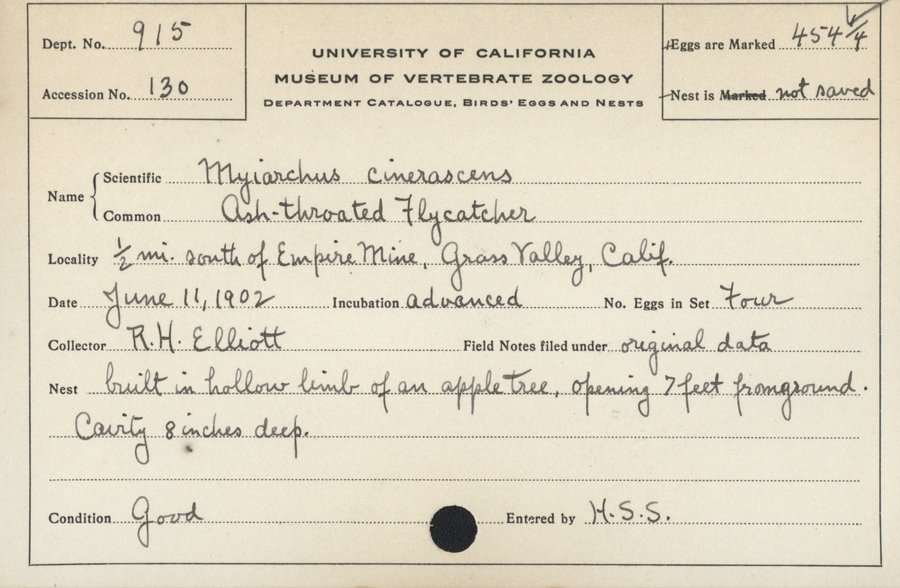 Dept. No. 915
Accession No. 130
UNIVERSITY OF CALIFORNIA
MUSEUM OF VERTEBRATE ZOOLOGY
DEPARTMENT CATALOGUE, BIRDS' EGGS AND NESTS
Eggs are Marked 454/4
Nest is Marked not saved
Name
Scientific Myiarchus cinerascens
Common Ash-throated Flycatcher
Locality 1/2 mi. south of Empire Mine, Grass Valley, Calif.
Date June 11, 1902 Incubation advanced No. Eggs in Set Four
Collector R.H. Elliott Field Notes filed under original data
Nest built in hollow limb of an apple tree, opening 7 feet from ground.
Cavity 8 inches deep.
Condition Good Entered by H.S.S.